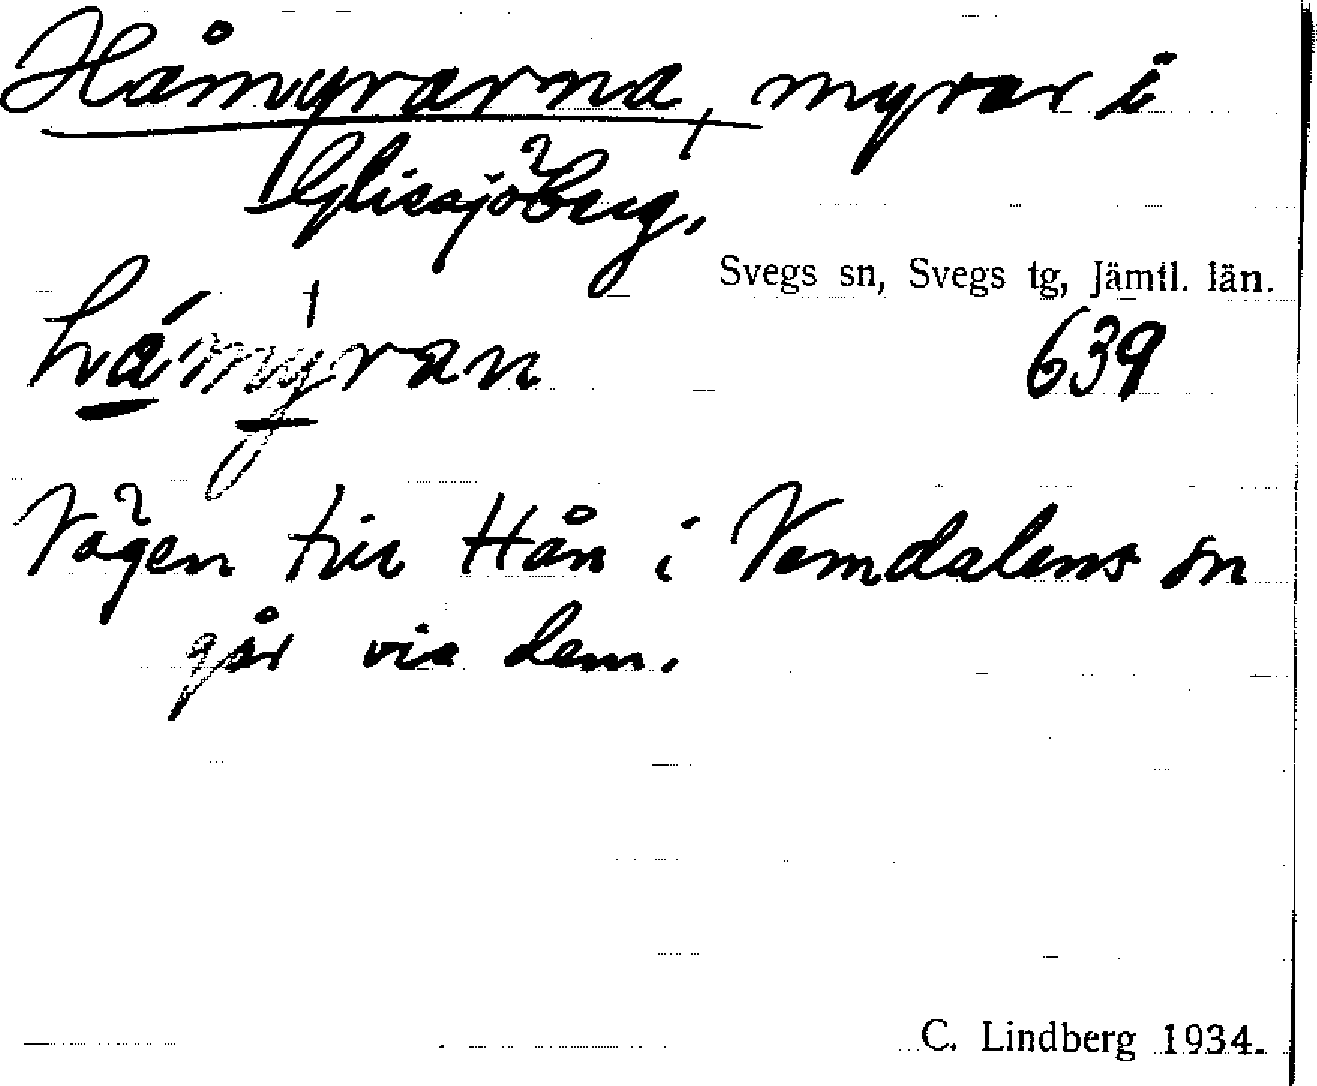 Håmyrarna, myrar i
Glissjöberg.
Svegs sn, Svegs tg, Jämtl. län.
håmyran
639
Vägen till Hån i Vemdalens sn
går via dem.
C. Lindberg 1934.